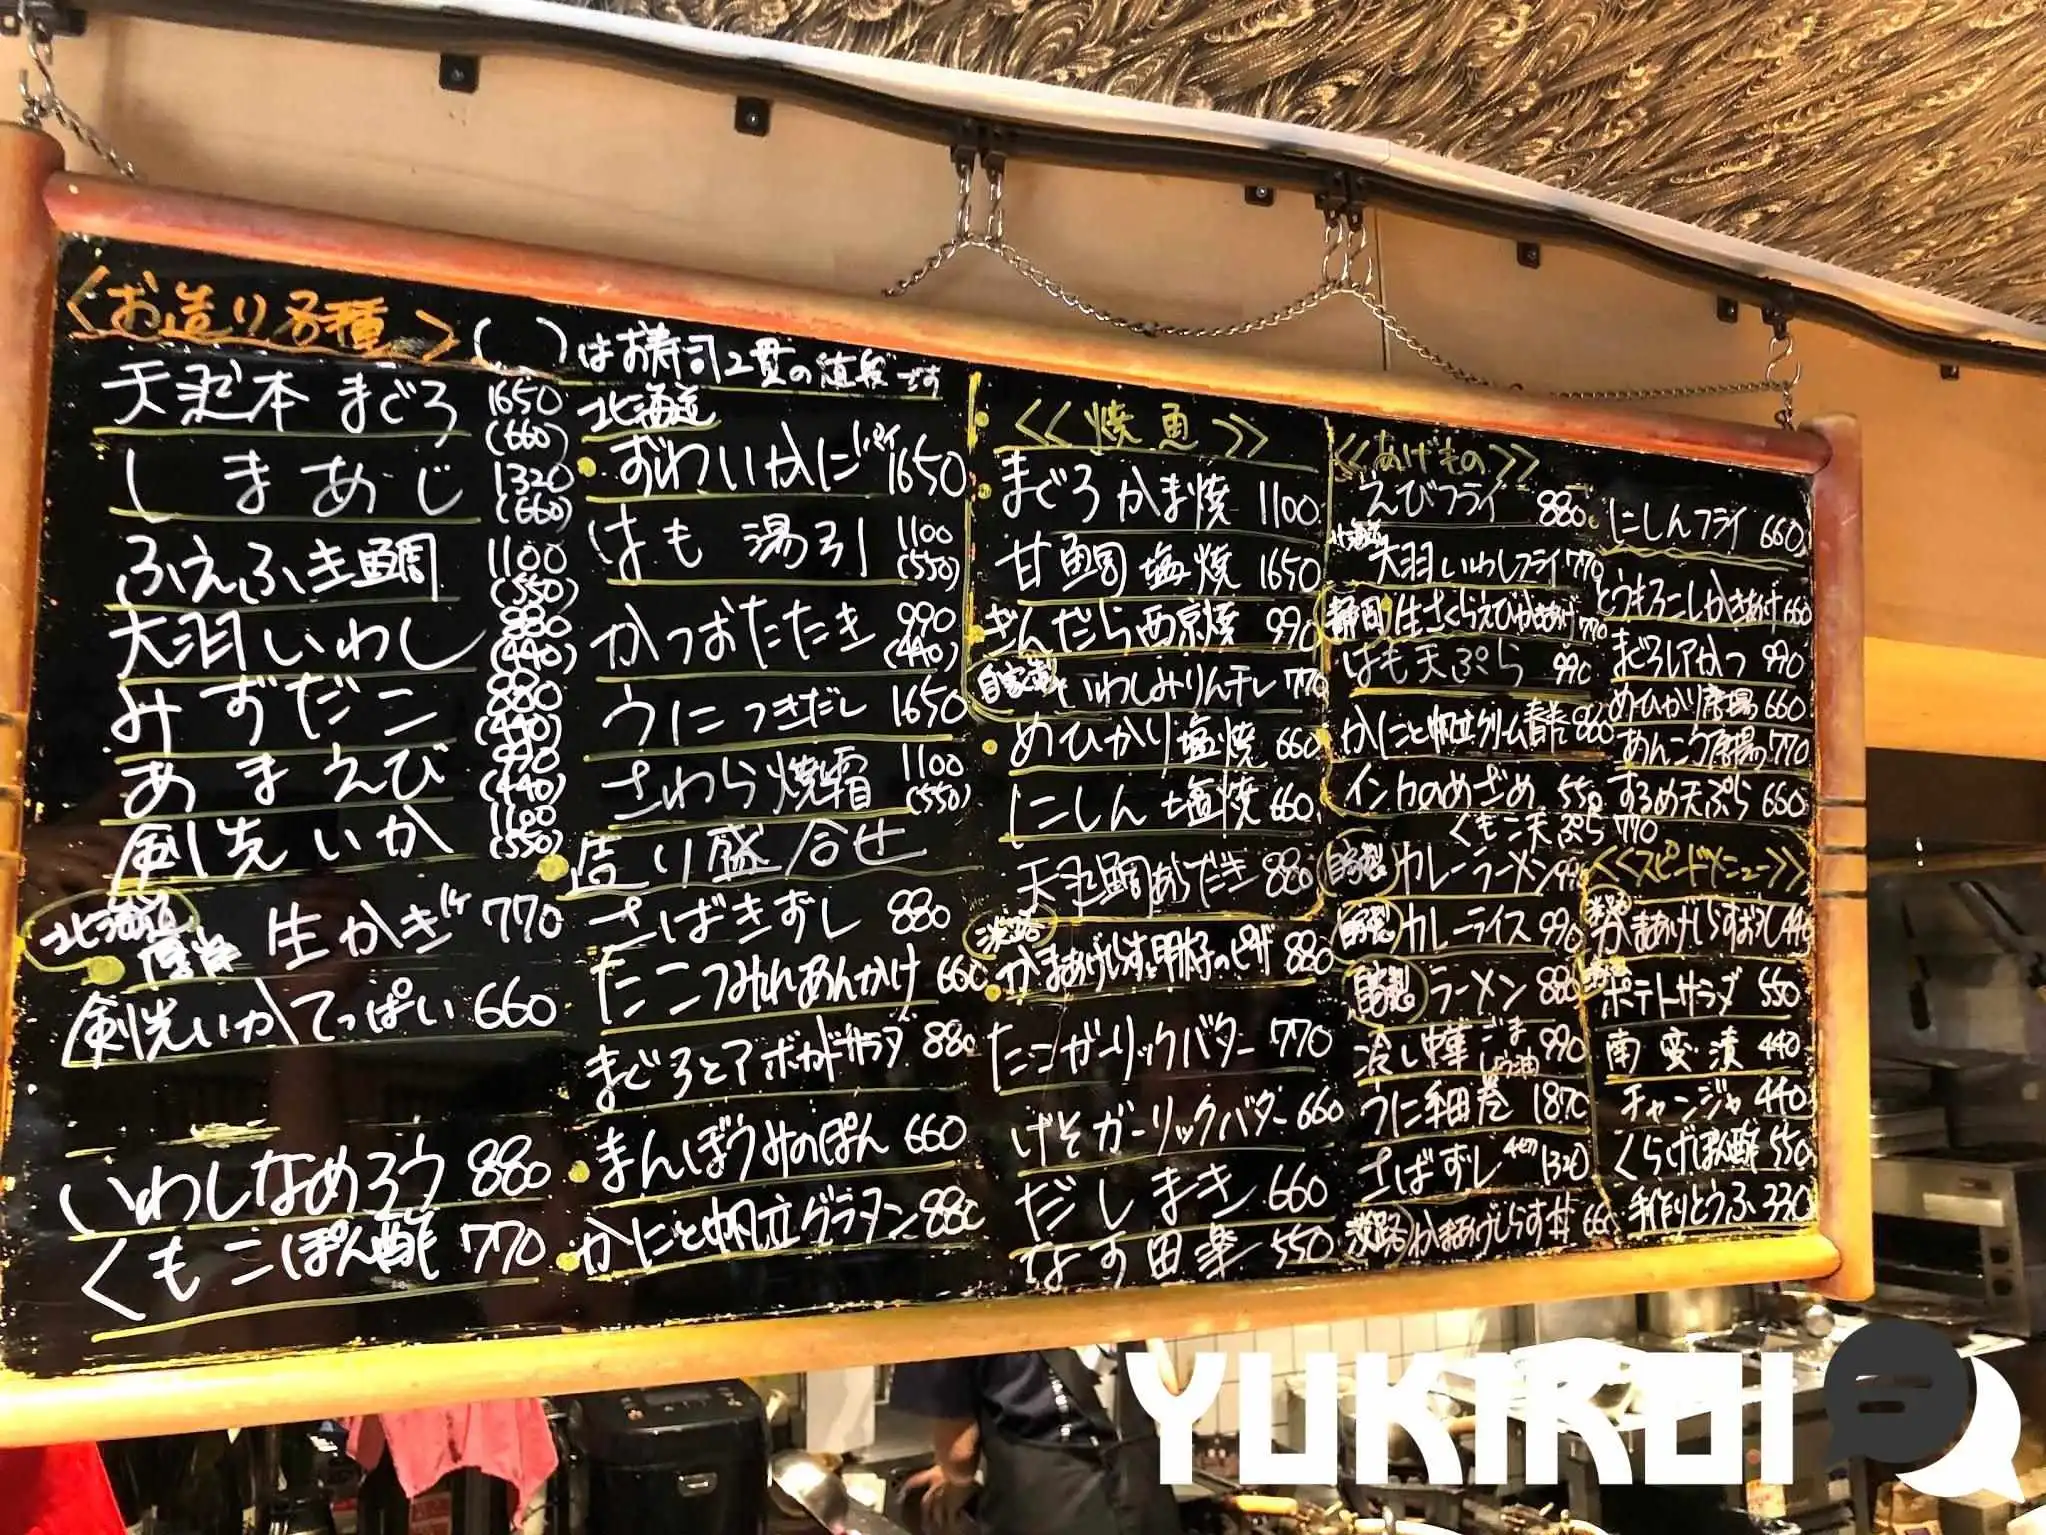 <お造り各種>
( )はお寿司2貫の値段です
天然本まぐろ 1650 (660)
しまあじ 1320 (660)
ふえふき鯛 1100 (550)
大羽いわし 880 (440)
みずだこ 880 (440)
あまえび 990 (440)
剣先いか 1100 (550)
北海道 厚岸 生かき 1ケ 770
剣先いかてっぱい 660
いわしなめろう 880
くもこぽん酢 770
北海道
ずわいかに 1パイ 1650
はも 湯引 1100 (550)
かつおたたき 990 (440)
うにつきだし 1650
さわら焼霜 1100 (550)
造り盛合せ
さばきずし 880
たこつみれあんかけ 660
まぐろとアボカドサラダ 880
まんぼうみのぽん 660
かにと帆立グラタン 880
<<焼魚>>
まぐろかま焼 1100
甘鯛塩焼 1650
ぎんだら西京焼 990
自家製 いわしみりん干し 770
めひかり塩焼 660
にしん塩焼 660
天然鯛あらだき 880
淡路 かまあげしらすと明太子のピザ 880
たこガーリックバター 770
げそガーリックバター 660
だしまき 660
なす田楽 550
<<あげもの>>
えびフライ 880
北海道
大羽いわしフライ 770
静岡 生さくらえびかきあげ 770
はも天ぷら 990
かにと帆立クリーム春巻 860
インカのめざめ 550
くもこ天ぷら 770
自家製 カレーラーメン 990
自家製 カレーライス 990
自家製 ラーメン 880
冷し中華 ごま しょう油 990
うに細巻 1870
さばずし 4切 1320
淡路 かまあげしらす丼 660
にしんフライ 660
とうもろこしかきあげ 660
まぐろレアかつ 990
めひかり唐揚 660
あんこう唐揚 770
するめ天ぷら 660
<<スピードメニュー>>
淡路 かまあげしらすおろし 440
ポテトサラダ 550
南蛮漬 440
チャンジャ 440
くらげぽん酢 550
手作りとうふ 330
YUKIROI